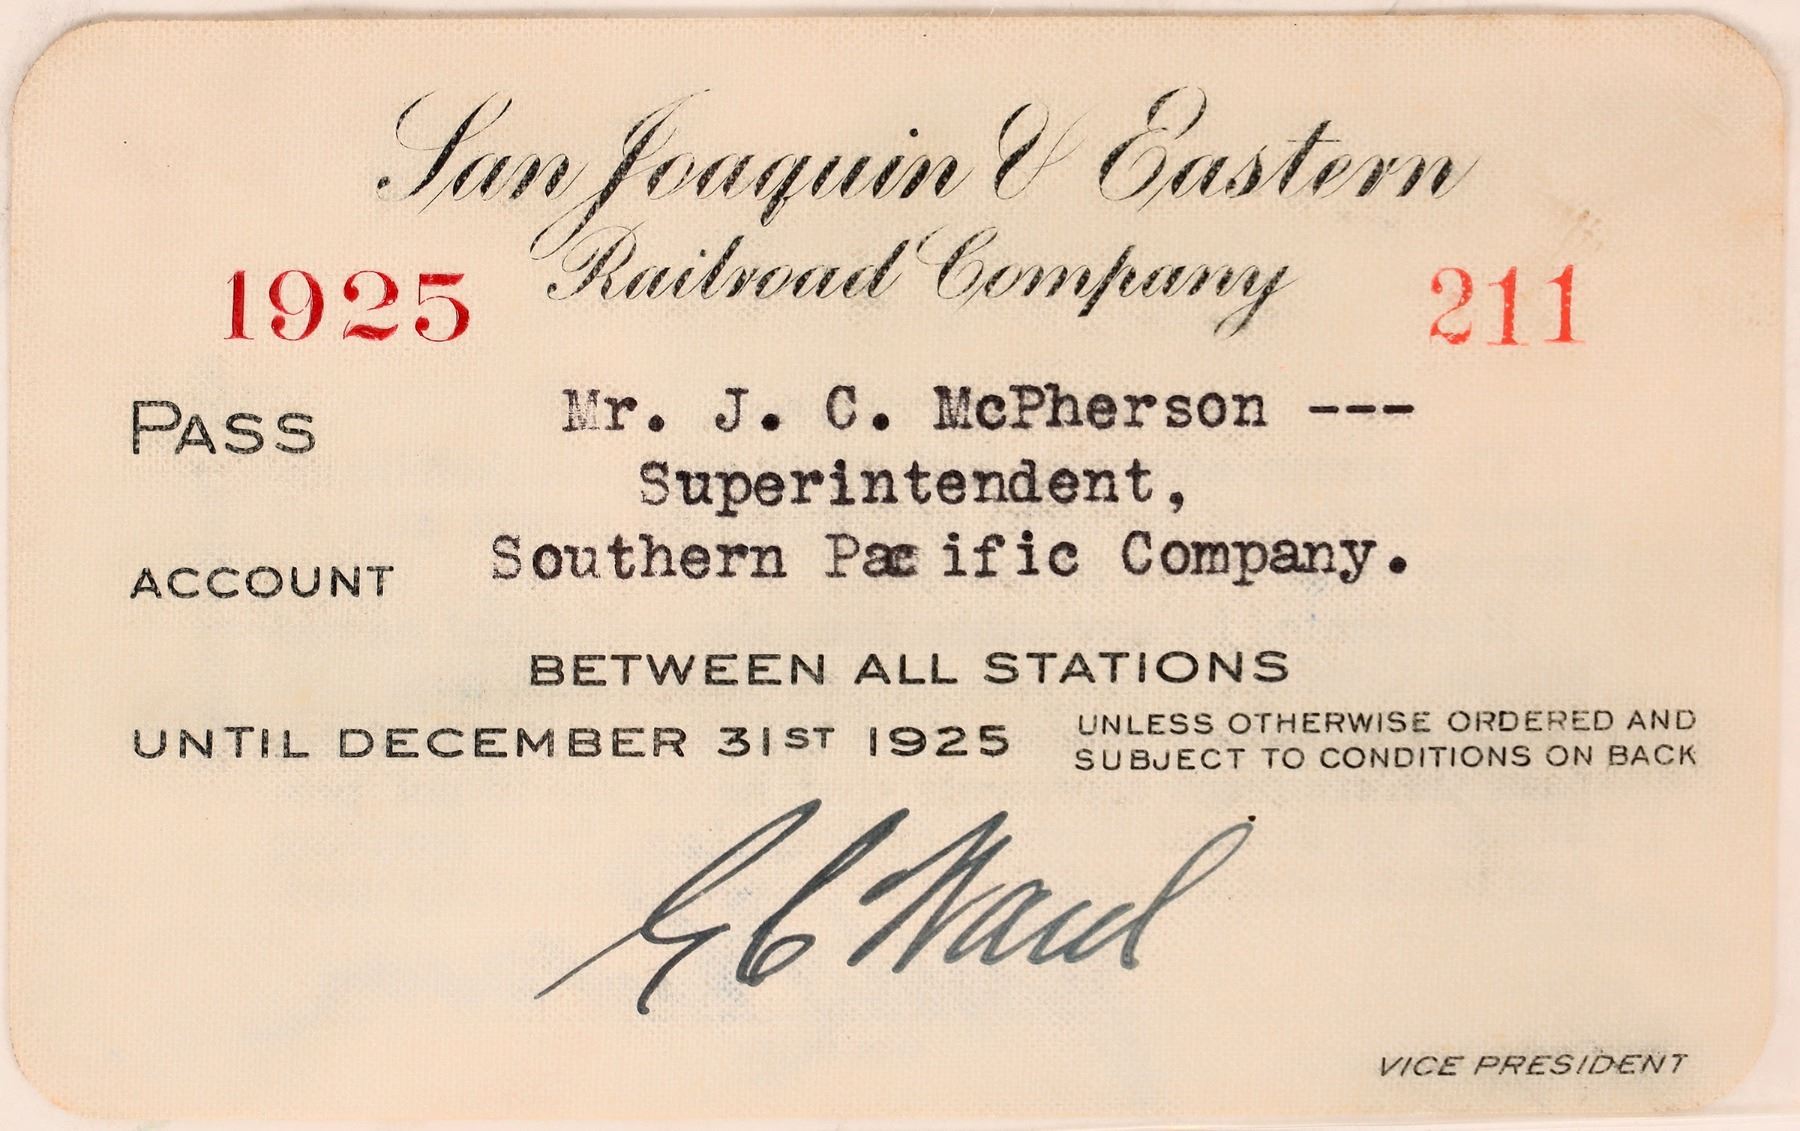 San Joaquin & Eastern
Railroad Company
1925
211
PASS Mr. J. C. McPherson ---
Superintendent,
ACCOUNT Southern Pacific Company.
BETWEEN ALL STATIONS
UNTIL DECEMBER 31ST 1925
UNLESS OTHERWISE ORDERED AND
SUBJECT TO CONDITIONS ON BACK
G C Ward
VICE PRESIDENT